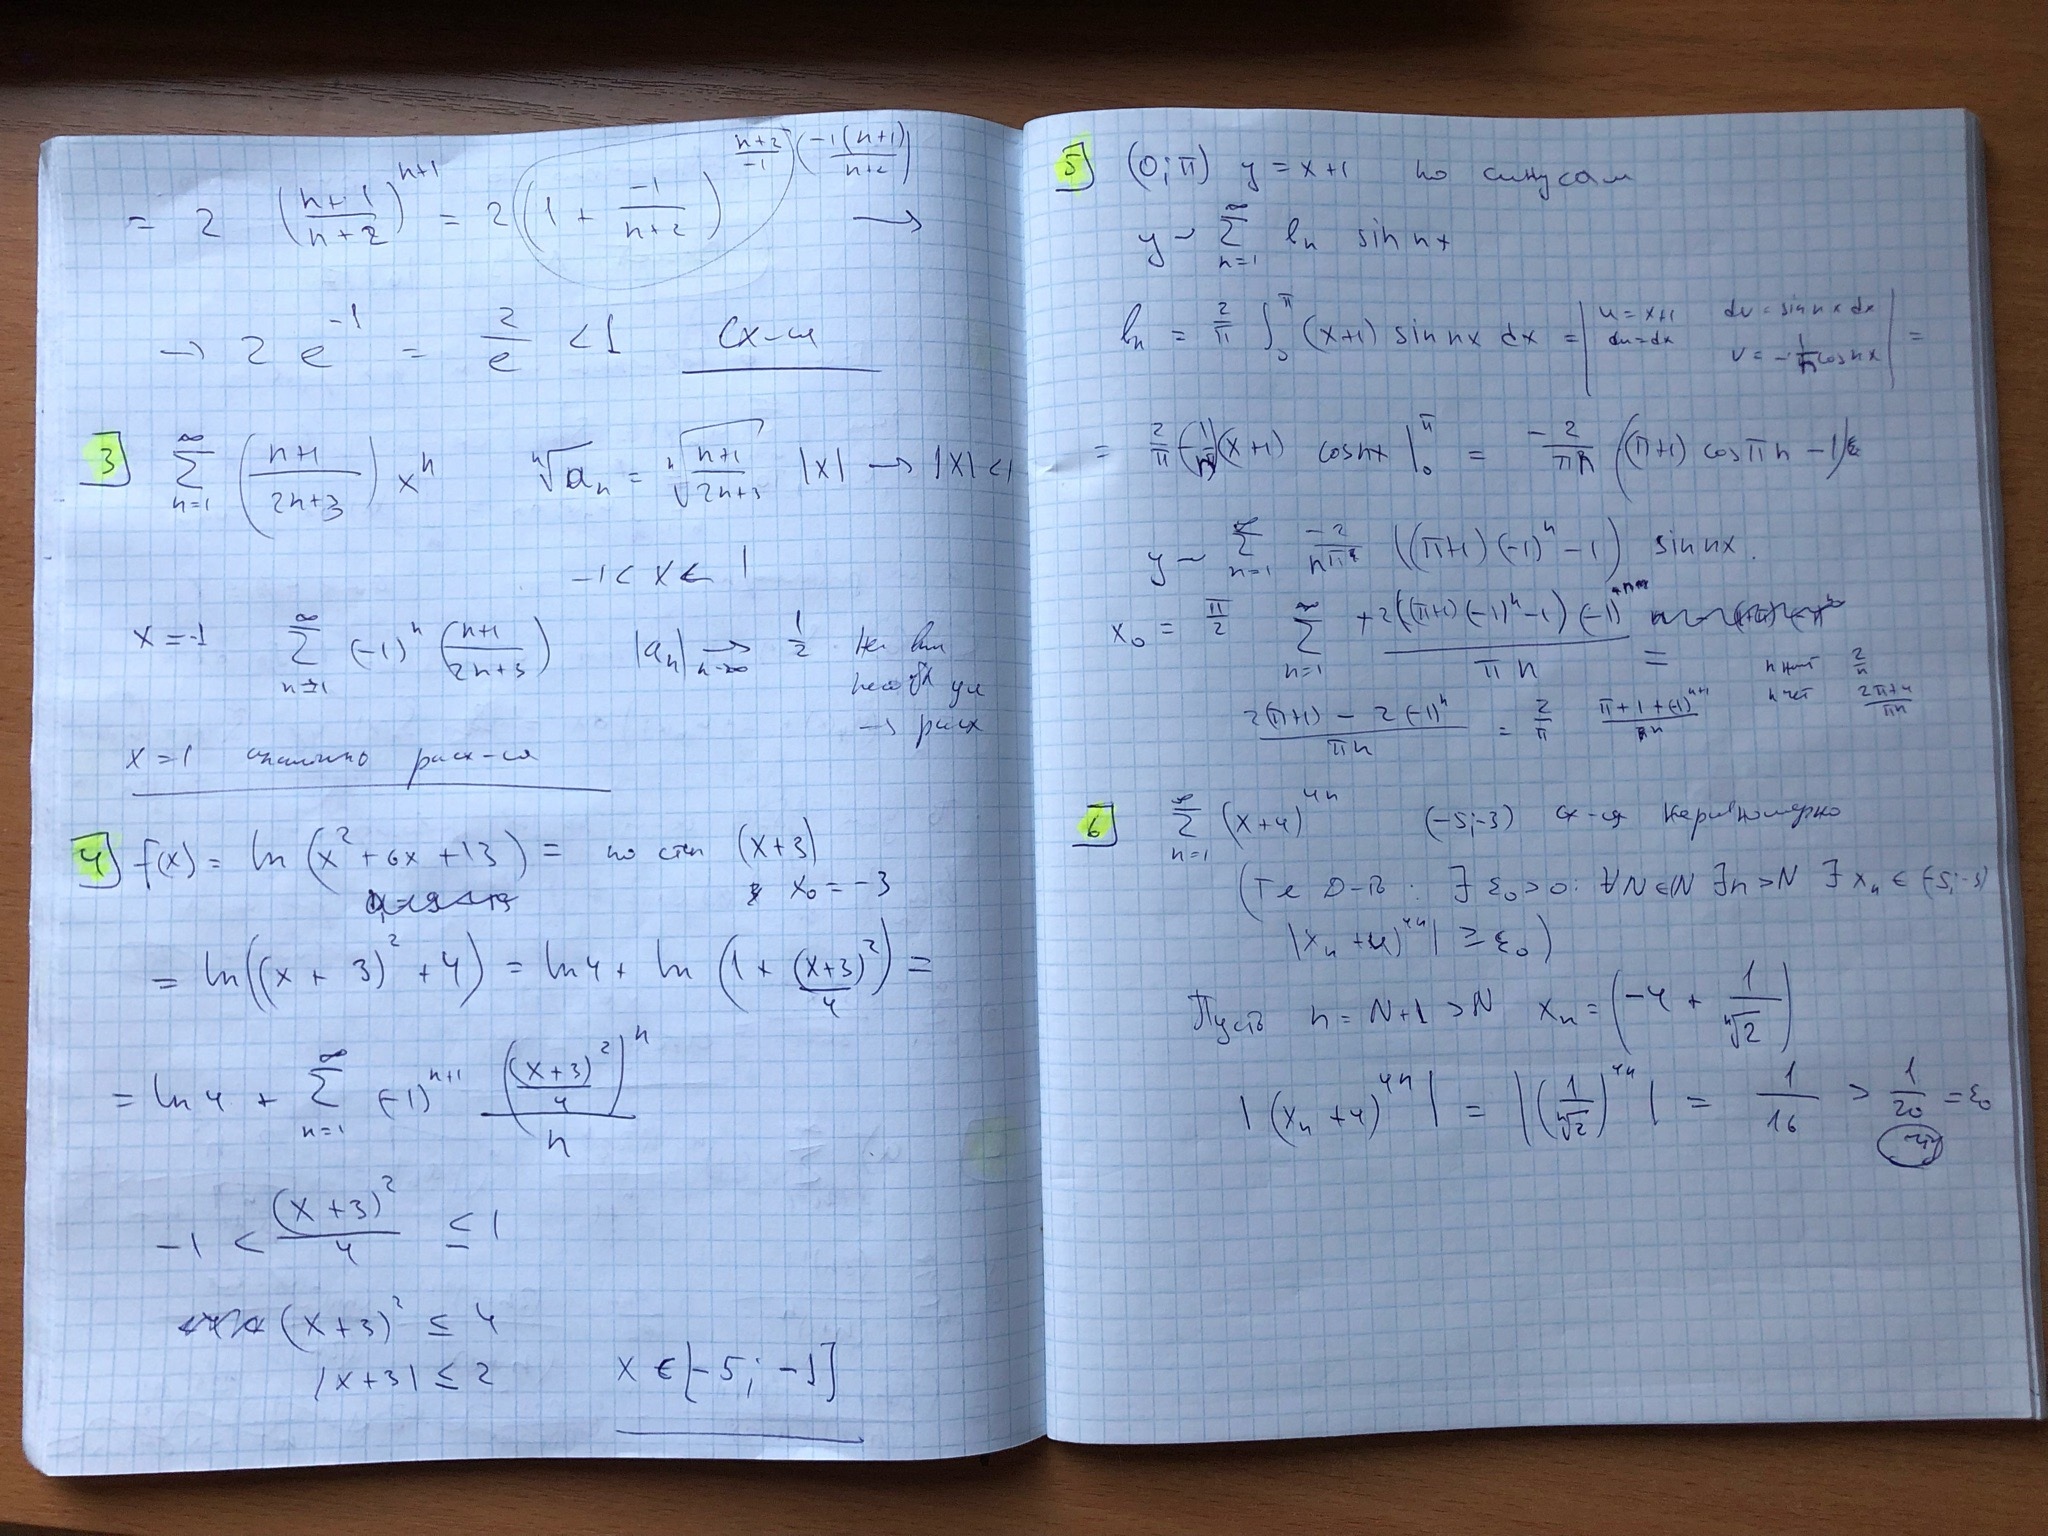 = 2 ((n+1)/(n+2))^(n+1) = 2 (1 + (-1)/(n+2))^((n+2)/(-1)) (-1(n+1)/(n+2)) →
→ 2 e^(-1) = 2/e < 1 Сх-ся
3 ∑_(n=1)^∞ ((n+1)/(2n+3)) x^n ⁿ√a_n = ⁿ√((n+1)/(2n+3)) |x| → |x| < 1
-1 < x < 1
x = -1 ∑_(n=1)^∞ (-1)^n ((n+1)/(2n+3)) |a_n| →_(n→∞) 1/2 Не вып
необх усл
→ расх
x = 1 аналогично расх-ся
4 f(x) = ln (x² + 6x + 13) = по степ (x+3)
x₀ = -3
= ln((x + 3)² + 4) = ln4 + ln (1 + (x+3)²/4) =
= ln 4 + ∑_(n=1)^∞ (-1)^(n+1) ((x+3)²/4)^n / n
-1 < (x+3)²/4 ≤ 1
(x+3)² ≤ 4
|x+3| ≤ 2 x ∈ [-5; -1]
5 (0; π) y = x+1 по синусам
y ~ ∑_(n=1)^∞ b_n sin nx
b_n = 2/π ∫_0^π (x+1) sin nx dx = | u = x+1 dv = sin nx dx
du = dx v = -1/n cos nx | =
= 2/π (-1/n)(x+1) cos nx |_0^π = -2/(πn) ((π+1) cos πn - 1)
y ~ ∑_(n=1)^∞ -2/(nπ) ((π+1)(-1)^n - 1) sin nx.
x₀ = π/2 ∑_(n=1)^∞ +2((π+1)(-1)^n - 1)(-1)^(n+1) / (πn) =
n чет 2/n
n чет (2π+4)/(πn)
(2(π+1) - 2(-1)^n)/(πn) = 2/π (π+1+(-1)^(n+1))/n
6 ∑_(n=1)^∞ (x+4)^(4n) (-5;-3) сх-ся неравномерно
(Те д-ть: ∃ ε₀ > 0: ∀N∈N ∃n > N ∃ x_n ∈ (-5;-3)
|(x_n + 4)^(4n)| ≥ ε₀)
Пусть n = N+1 > N x_n = (-4 + 1/ⁿ√2)
|(x_n + 4)^(4n)| = |(1/ⁿ√2)^(4n)| = 1/16 > 1/20 = ε₀
чтд